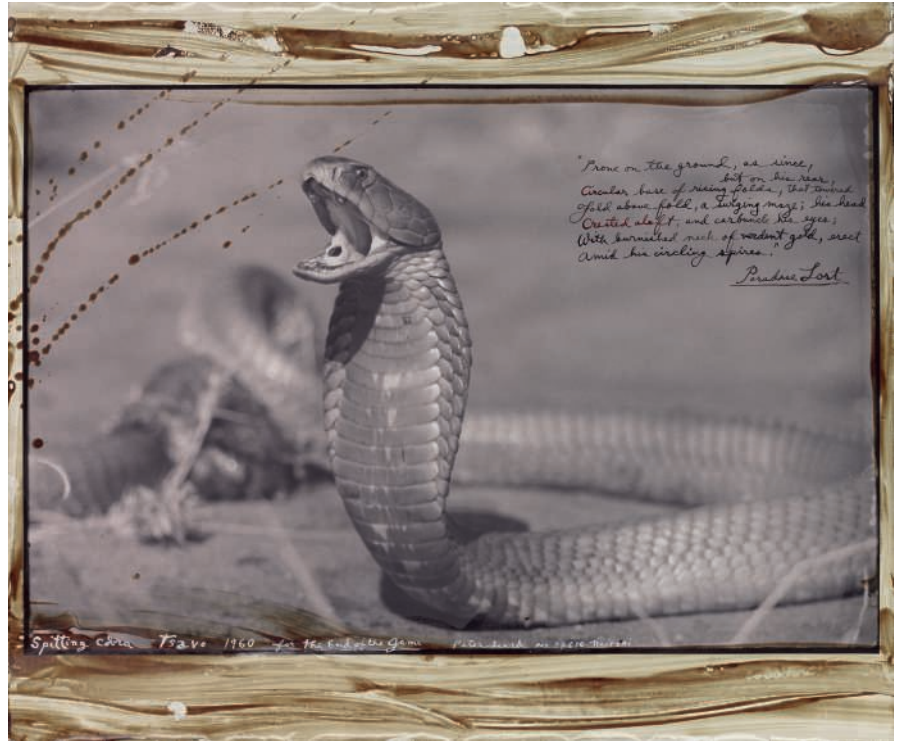 "Prone on the ground, as since,
but on his rear,
Circular base of rising folds, that towered
fold above fold, a surging maze; his head
Crested aloft, and carbuncle his eyes;
With burnished neck of verdent gold, erect
amid his circling spires."
Paradise Lost
"Spitting Cobra Tsavo 1960 for The End of the Game Peter Beard Nairobi